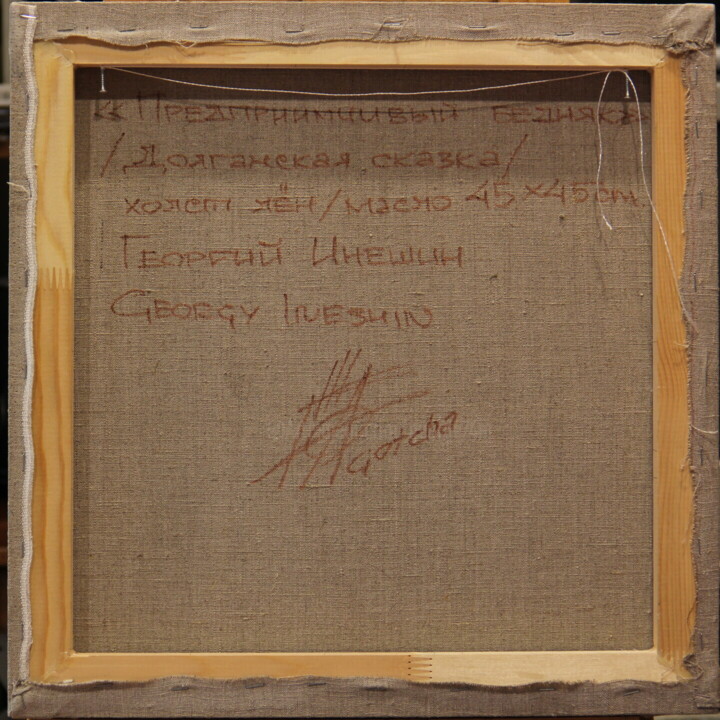 «Предприимчивый бедняк»
/Долганская сказка/
холст лён/масло 45×45cm.
Георгий Инешин
Georgy Ineshin
Gotcha